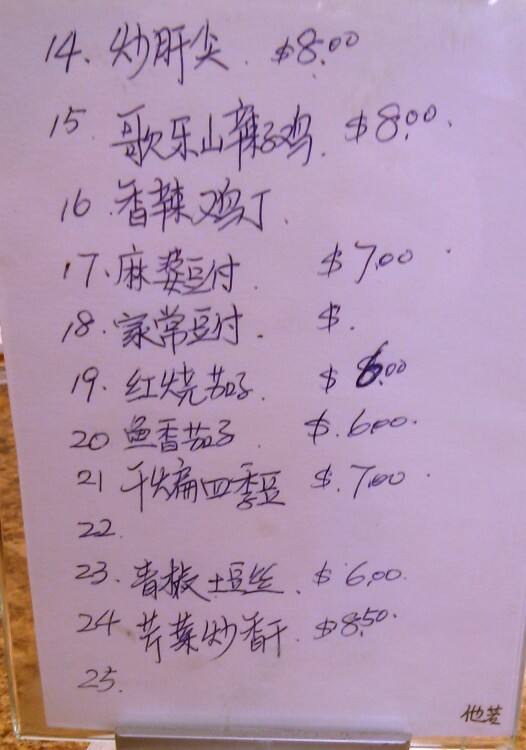 14、炒肝尖. $8.00
15. 歌乐山辣子鸡. $8.00.
16. 香辣鸡丁.
17、麻婆豆付 $7.00
18. 家常豆付. $.
19. 红烧茄子. $6.00
20 鱼香茄子. $.6.00.
21 干煸四季豆 $.7.00
22.
23. 青椒土豆丝. $6.00.
24. 芹菜炒香干. $8.50.
25.